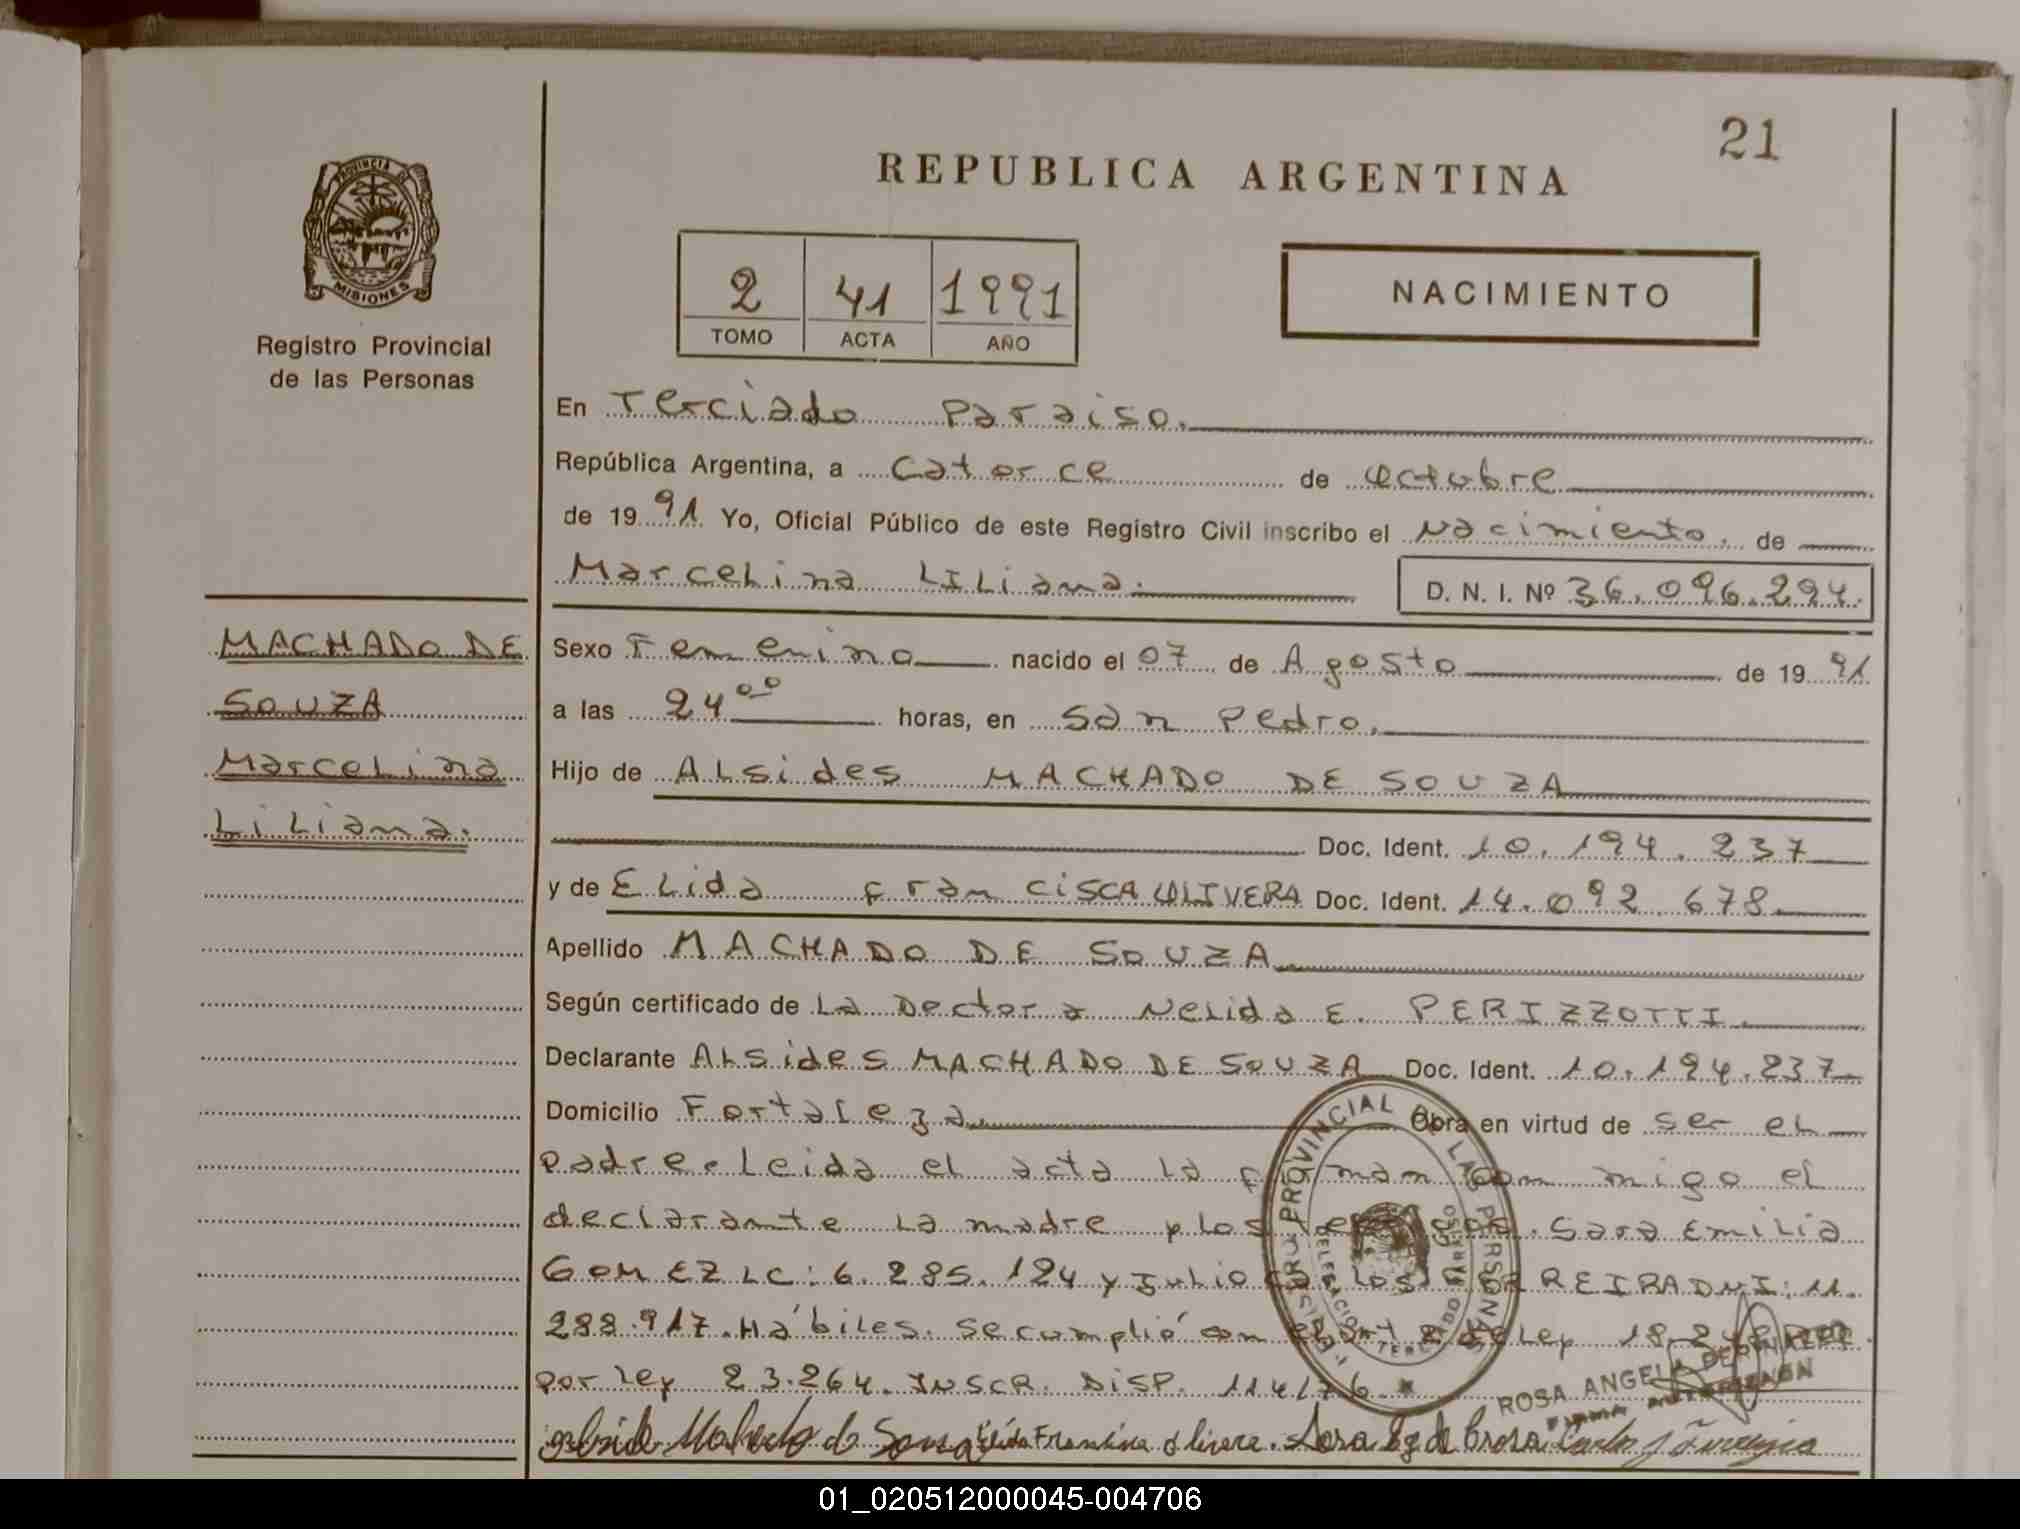 21
REPUBLICA ARGENTINA
PROVINCIA DE
MISIONES
Registro Provincial
de las Personas
2 41 1991
TOMO ACTA AÑO
NACIMIENTO
En Terciado Paraiso.
República Argentina, a Catorce de octubre
de 1991 Yo, Oficial Público de este Registro Civil inscribo el Nacimiento. de
Marcelina Liliana. D. N. I. Nº 36.096.294.
MACHADO DE
SOUZA
Marcelina
Liliana.
Sexo Femenino nacido el 07 de Agosto de 1991
a las 24 oo horas, en San Pedro.
Hijo de Alsides MACHADO DE SOUZA
Doc. Ident. 10.194.237
y de Elida Francisca OLIVERA Doc. Ident. 14.092.678
Apellido MACHADO DE SOUZA
Según certificado de La Doctora Nelida E. PERIZZOTTI.
Declarante Alsides MACHADO DE SOUZA Doc. Ident. 10.194.237
Domicilio Fortaleza. Obra en virtud de ser el
padre. Leida el acta la firman conmigo el
declarante la madre y los testigos. Sara Emilia
GOMEZ LC: 6.285.124 y Julio Carlos FERREIRA DNI: 11.
288.917. Hábiles. Se cumplió con el Art 2 de Ley 18.248
por ley 23.264. INSCR. DISP. 114/76.
REGISTRO PROVINCIAL DE LAS PERSONAS
DELEGACION TERCIADO PARAISO
ROSA ANGELA
Machado de Souza Elida Francisca Olivera. Sara
01_020512000045-004706